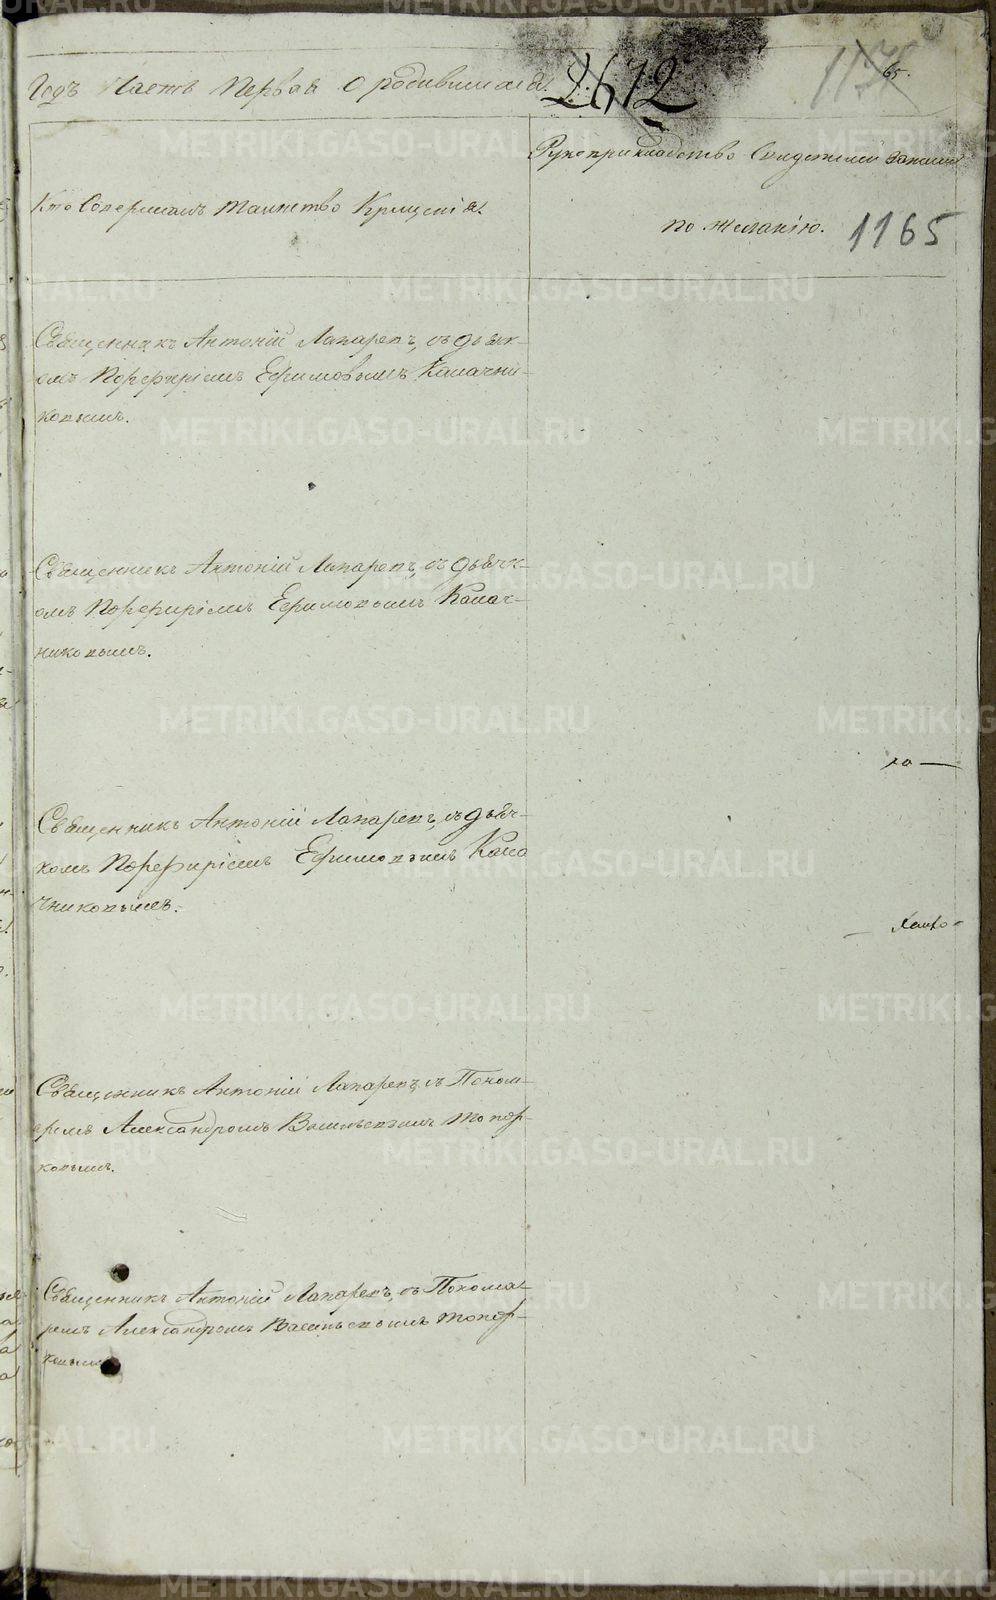 Годъ Часть Первая о родившихся.
2672
65.
Рукоприкладство Свидетелей записи
Кто Совершалъ таинство Крещенія.
по желанію.
1165
Священникъ Антоній Лапаревъ, съ дьяч-
омъ Порфиріемъ Ефимовымъ Калачни-
ковымъ.
Священникъ Антоній Лапаревъ, съ дьячк-
омъ Порфиріемъ Ефимовымъ Калач-
никовымъ.
Священникъ Антоній Лапаревъ, съ дьяч-
комъ Порфиріемъ Ефимовымъ Кала
чниковымъ.
Священникъ Антоній Лапаревъ, съ Поном-
аремъ Александромъ Васильевымъ Топор-
ковымъ.
Священникъ Антоній Лапаревъ, съ Понома-
ремъ Александромъ Васильевымъ Топор-
ковымъ
METRIKI.GASO-URAL.RU